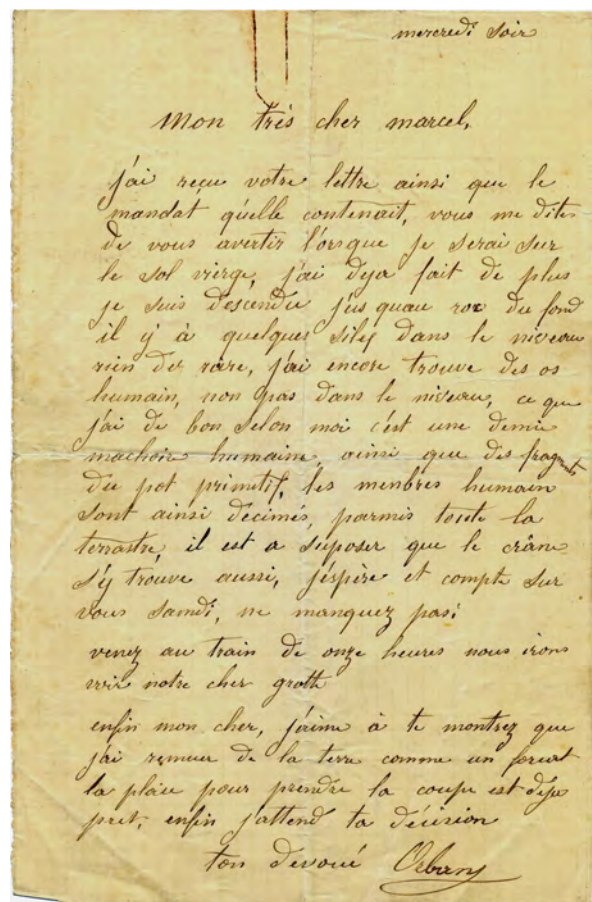 mercredi soir
Mon très cher marcel,
j'ai reçu votre lettre ainsi que le
mandat qu'elle contenait, vous me dites
de vous avertir l'orsque je serai sur
le sol vierge, j'ai deja fait de plus
je suis descendu j'us quau roc du fond
il y à quelques silex dans le niveau
rien de rare, j'ai encore trouve des os
humain, non pas dans le niveau, ce que
j'ai de bon selon moi c'est une demie
machoire humaine, ainsi que des fragments
du pot primitif, les menbres humain
sont ainsi décimés, parmis toute la
terrastre, il est a suposer que le crâne
s'y trouve aussi, j'éspère et compte sur
vous samdi, ne manquez pas!
venez au train de onze heures nous irons
voir notre cher grotte
enfin mon cher, j'aime à te montrez que
j'ai remuer de la terre comme un forcat
la place pour prendre la coupe est deja
pret, enfin j'attend ta décision
ton devoué